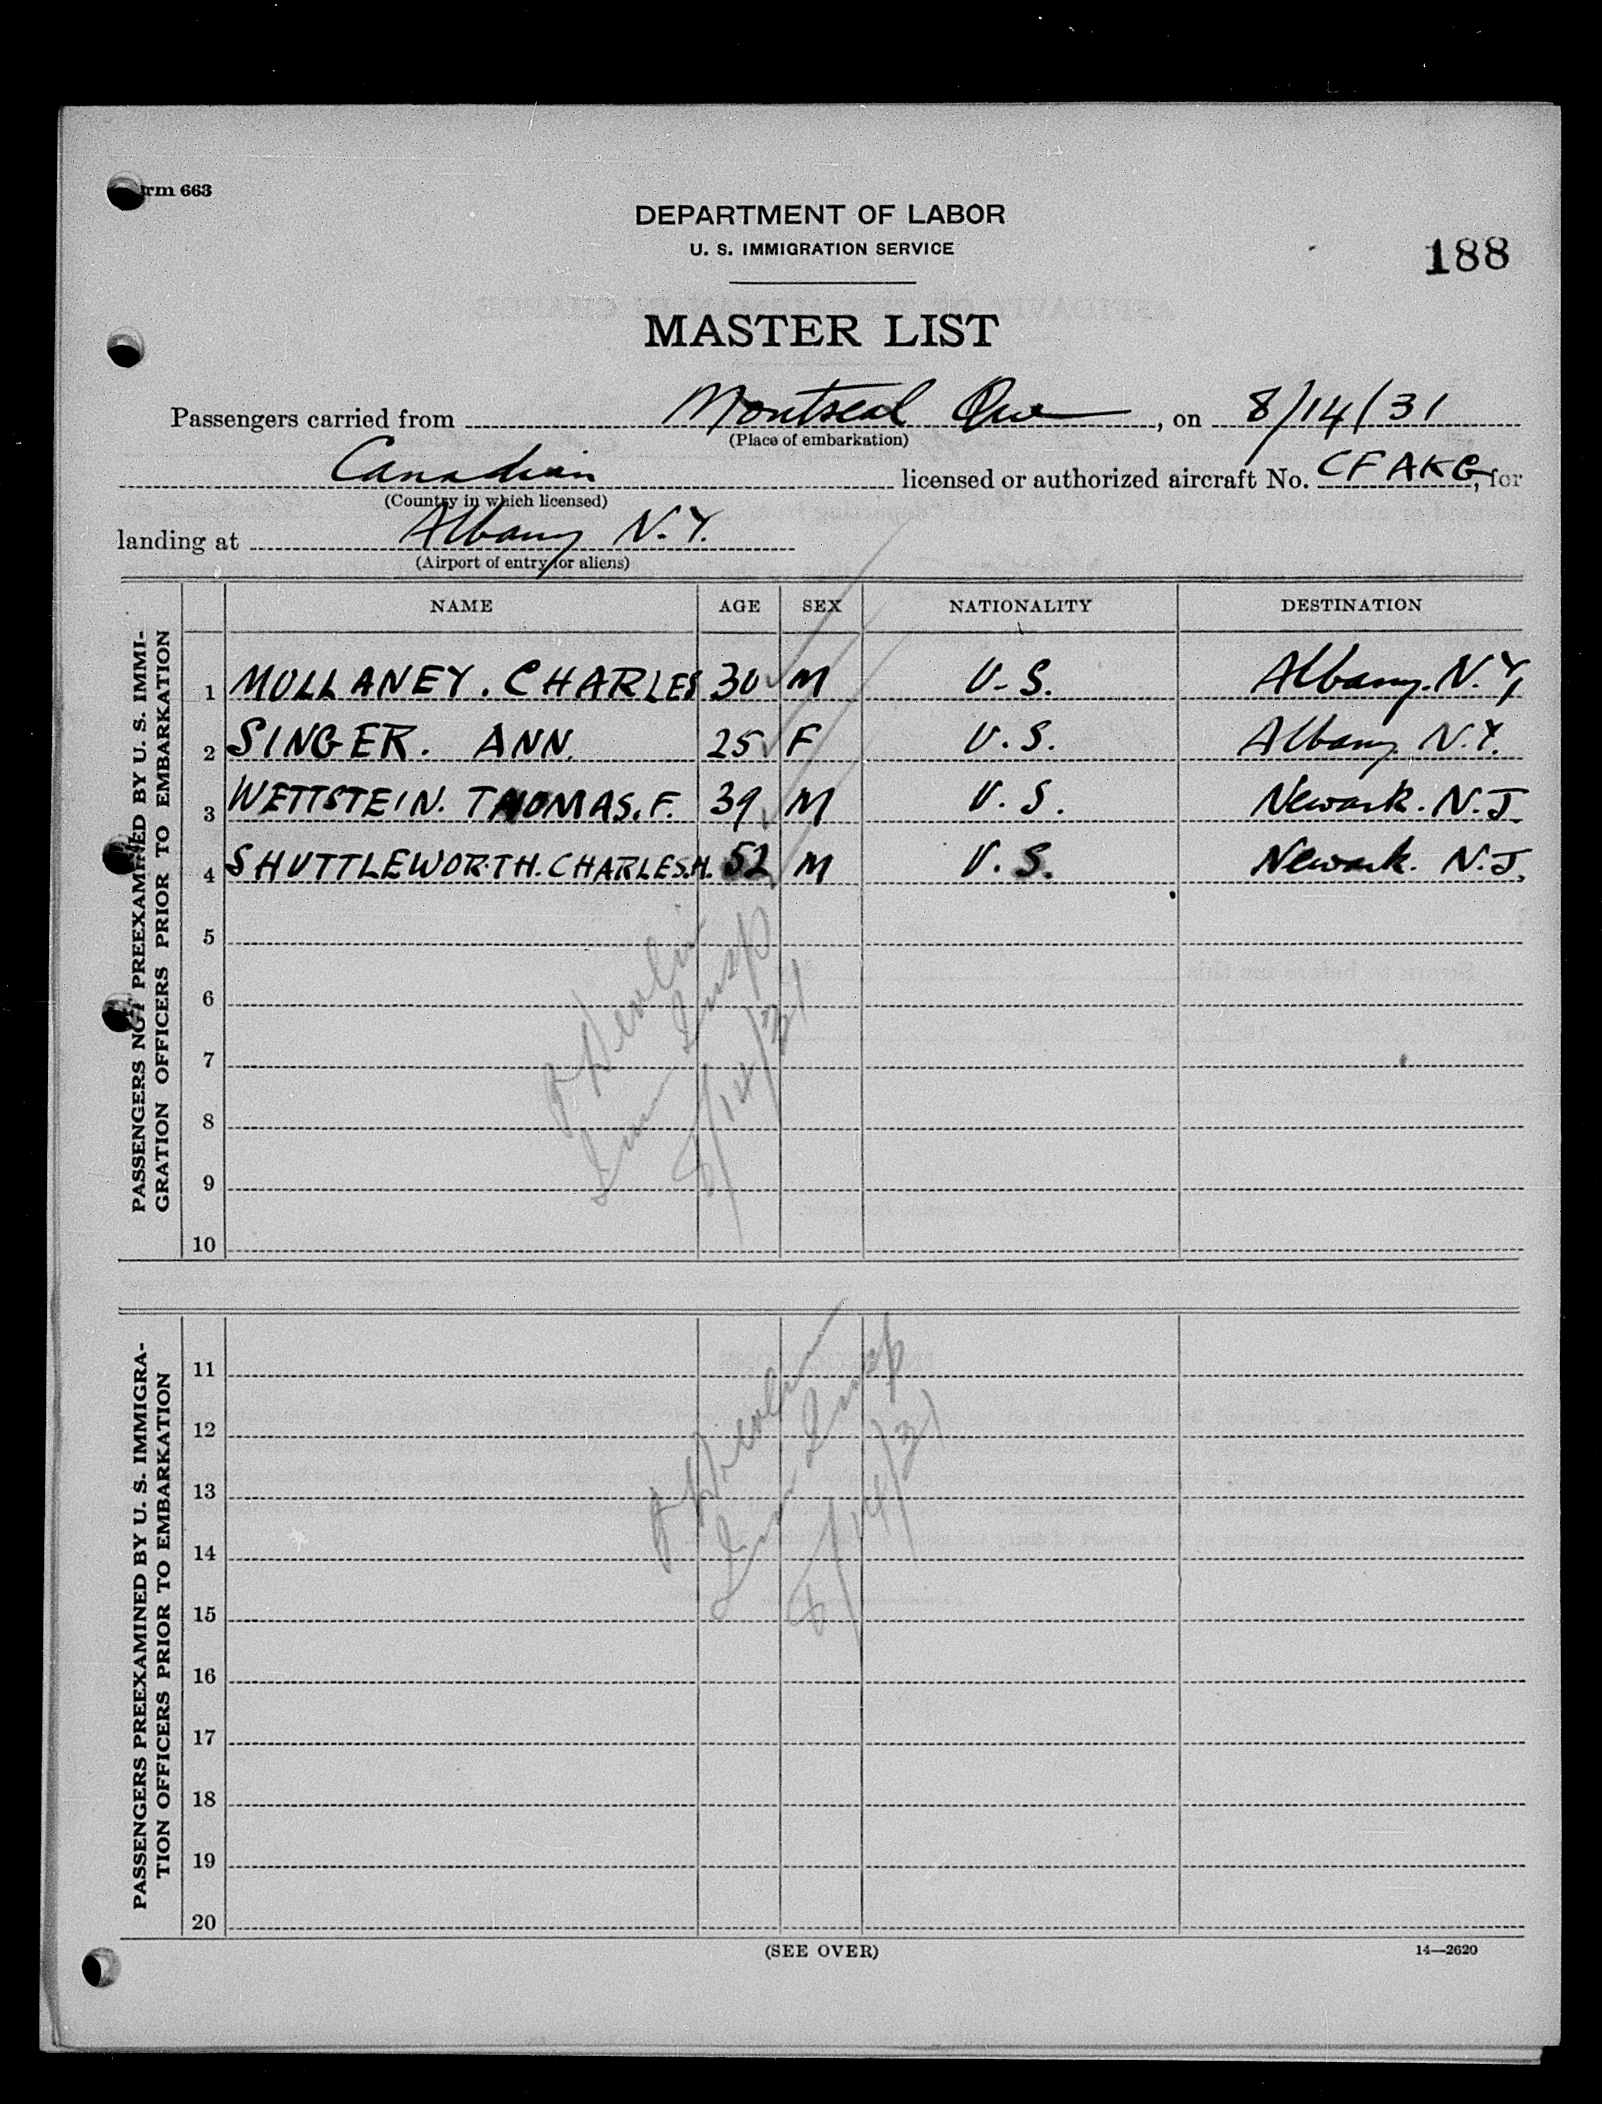 rm 663
DEPARTMENT OF LABOR
U. S. IMMIGRATION SERVICE
188
MASTER LIST
Passengers carried from Montreal Que, on 8/14/31
(Place of embarkation)
Canadian licensed or authorized aircraft No. CFAKG, for
(Country in which licensed)
landing at Albany N.Y.
(Airport of entry for aliens)
NAME AGE SEX NATIONALITY DESTINATION
PASSENGERS NOT PREEXAMINED BY U. S. IMMI-
GRATION OFFICERS PRIOR TO EMBARKATION
1 MULLANEY. CHARLES 30 M U-S. Albany. N.Y.
2 SINGER. ANN. 25 F U.S. Albany N.Y.
3 WETTSTEIN. THOMAS. F. 39 M U.S. Newark. N.J.
4 SHUTTLEWORTH. CHARLES.H. 52 M U.S. Newark. N.J.
5
6
7
8
9
10
Imm Insp
8/14/31
PASSENGERS PREEXAMINED BY U. S. IMMIGRA-
TION OFFICERS PRIOR TO EMBARKATION
11
12
13
14
15
16
17
18
19
20
Imm Insp
8/14/31
(SEE OVER)
14—2620